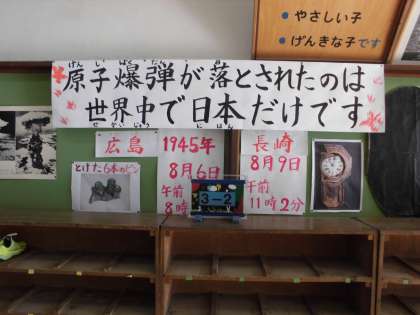 ● やさしい子
● げんきな子です
げんしばくだん
原子爆弾が落とされたのは
世界中で日本だけです
せかいじゅう にほん
広島
1945年
8月6日
午前
8時
長崎
8月9日
午前
11時2分
とけた6本のビン
3-2